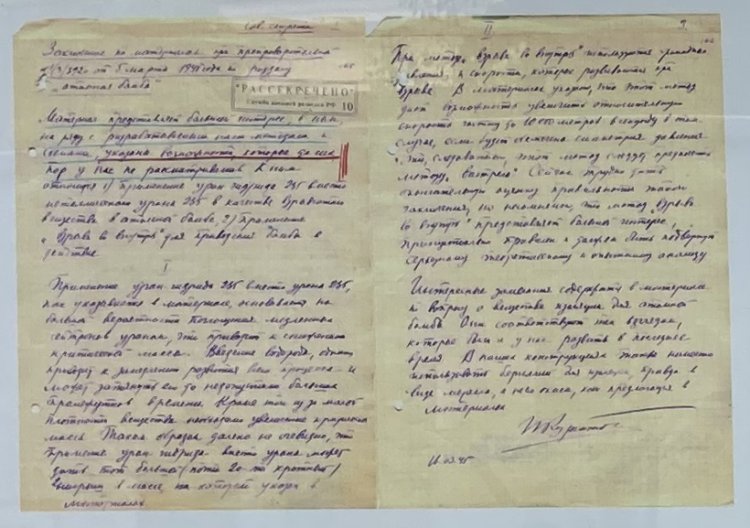 Сов. секретно
Заключение по материалам при препроводительной
1/3/3920 от 5 марта 1945 года к разделу
"атомная бомба"
"РАССЕКРЕЧЕНО"
Служба внешней разведки РФ
10
Материал представляет большой интерес, в нем,
на ряду с разрабатываемыми нами методами и
схемами, указаны возможности, которые до сих
пор у нас не рассматривались. К ним
относится: 1) Применение уран гидрида 235 вместо
металлического урана 235 в качестве взрывчатого
вещества в атомной бомбе. 2) Применение
"взрыва во внутрь" для приведения бомбы в
действие.
I
Применение уран гидрида 235 вместо урана 235,
как указывается в материале, основывается на
большей вероятности поглощения медленных
нейтронов ураном, что приводит к снижению
критической массы. Введение водорода, однако
приводит к замедлению развития всего процесса и
может затянуть его до недопустимо больших
промежутков времени. Кроме того из за малой
плотности вещества необходимо увеличение критической
массы. Таким образом далеко не очевидно, что
применение уран гидрида вместо урана может
дать тот большой /почти 20-ти кратный/
выигрыш в массе, на который указано в
материалах.
II
9
При методе "взрыва во внутрь" используются громадные
давления, и скорости, которые развиваются при
взрыве. В материалах указано, что этот метод
дает возможность увеличить относительную
скорость частиц до 10 000 метров в секунду в том
случае, если будет обеспечена симметрия давления
и что, следовательно, этот метод следует предпочесть
методу "выстрела". Сейчас трудно дать
окончательную оценку правильности такого
заключения, но несомненно, что метод "взрыва
во внутрь" представляет большой интерес,
принципиально правилен и должен быть подвергнут
серьезному теоретическому и опытному анализу
Интересные замечания содержит материал
по вопросу о веществе изоляции для атомной
бомбы. Они соответствуют тем взглядам,
которые были и у нас развиты в последнее
время. В нашей конструкции также намечено
использовать бериллий для этого, правда в
виде металла, а не окиси, как предлагается в
материалах
16.03.45